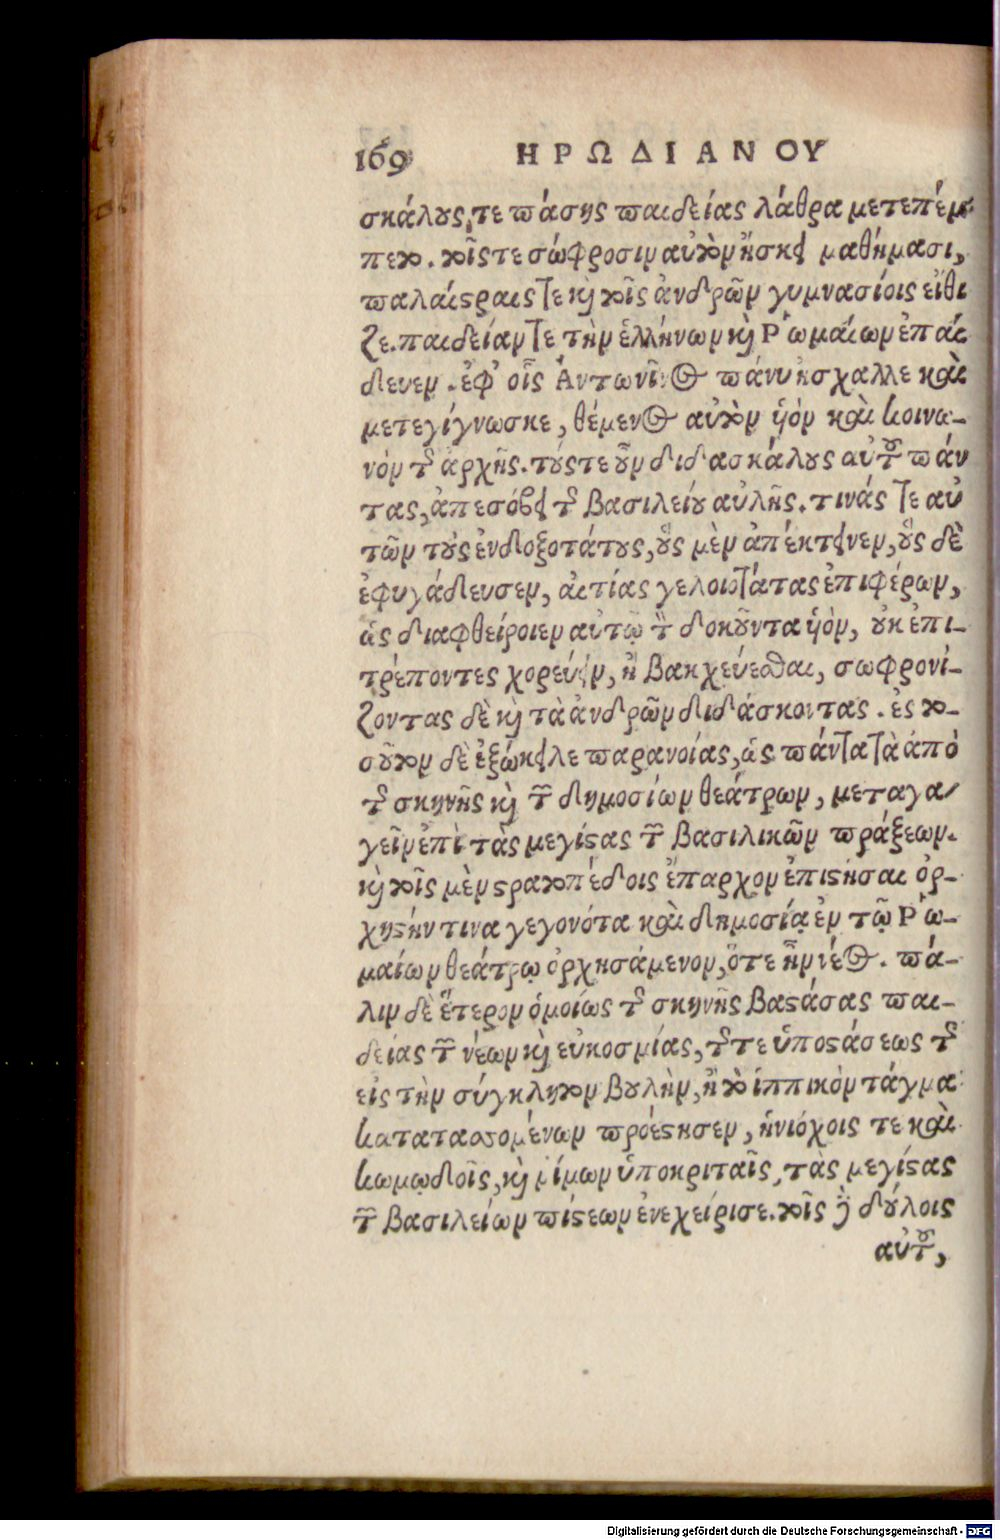 169 ΗΡΩΔΙΑΝΟΥ
σκάλους, τε πάσης παιδείας λάθρα μετεπέμ-
πετο. τοῖς τε σώφροσιν αὐτὸν ἤσκει μαθήμασι,
παλαίστραις τε καὶ τοῖς ἀνδρῶν γυμνασίοις εἴθι
ζε. παιδείαν τε τὴν ἑλλήνων καὶ Ῥωμαίων ἐπαί
δευεν. ἐφ' οἷς Ἀντωνῖνος πάνυ ἤσχαλλε καὶ
μετεγίγνωσκε, θέμενος αὐτὸν ὑὸν καὶ κοινω-
νὸν τῆς ἀρχῆς. τούς τε οὖν διδασκάλους αὐτοῦ πάν
τας, ἀπεσόβει τῆς βασιλείου αὐλῆς. τινάς τε αὐ
τῶν τοὺς ἐνδοξοτάτους, οὓς μὲν ἀπέκτεινεν, οὓς δὲ
ἐφυγάδευσεν, αἰτίας γελοιοτάτας ἐπιφέρων,
ὡς διαφθείροιεν αὐτῷ τὸν δοκοῦντα ὑὸν, οὐκ ἐπι-
τρέποντες χορεύειν, ἢ βακχεύεσθαι, σωφρονί-
ζοντας δὲ καὶ τὰ ἀνδρῶν διδάσκοντας. ἐς το-
σοῦτον δὲ ἐξώκειλε παρανοίας, ὡς πάντα τὰ ἀπὸ
τῆς σκηνῆς καὶ τῶν δημοσίων θεάτρων, μεταγα-
γεῖν ἐπὶ τὰς μεγίστας τῶν βασιλικῶν πράξεων.
καὶ τοῖς μὲν στρατοπέδοις ἔπαρχον ἐπιστῆσαι ὀρ-
χηστήν τινα γεγονότα καὶ δημοσίᾳ ἐν τῷ Ῥω-
μαίων θεάτρῳ ὀρχησάμενον, ὅτε ἦν νέος. πά-
λιν δὲ ἕτερον ὁμοίως τῆς σκηνῆς βαστάσας παι-
δείας τῶν νέων καὶ εὐκοσμίας, τῆς τε ὑποστάσεως τῆς
εἰς τὴν σύγκλητον βουλὴν, ἢ τὸ ἱππικὸν τάγμα
κατατασσομένων προέστησεν, ἡνιόχοις τε καὶ
κωμῳδοῖς, καὶ μίμων ὑποκριταῖς, τὰς μεγίστας
τῶν βασιλείων πίστεων ἐνεχείρισε. τοῖς δὲ δούλοις
αὐτοῦ,
Digitalisierung gefördert durch die Deutsche Forschungsgemeinschaft - DFG